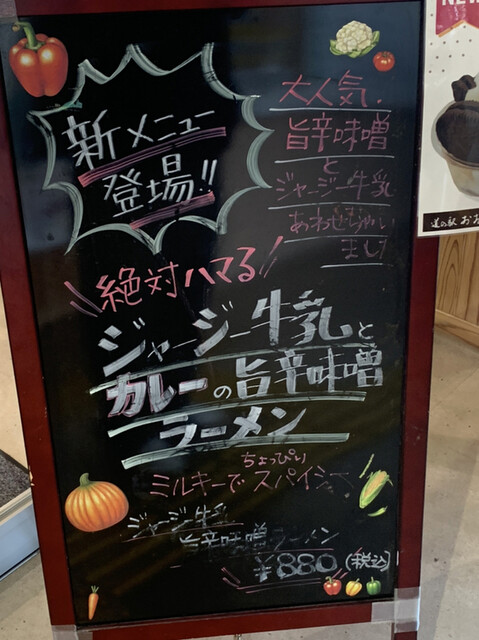 新メニュー
登場!!
大人気、
旨辛味噌
と
ジャージー牛乳
あわせちゃい
ました
絶対ハマる
ジャージー牛乳と
カレーの旨辛味噌
ラーメン
ちょっぴり
ミルキーでスパイシー
ジャージー牛乳
旨辛味噌ラーメン
¥880(税込)
NEW
道の駅 お